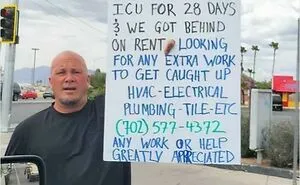 ICU FOR 28 DAYS
& WE GOT BEHIND
ON RENT LOOKING
FOR ANY EXTRA WORK
TO GET CAUGHT UP
HVAC-ELECTRICAL
PLUMBING-TILE-ETC
(702) 577-4372
ANY WORK OR HELP
GREATLY APPRECIATED